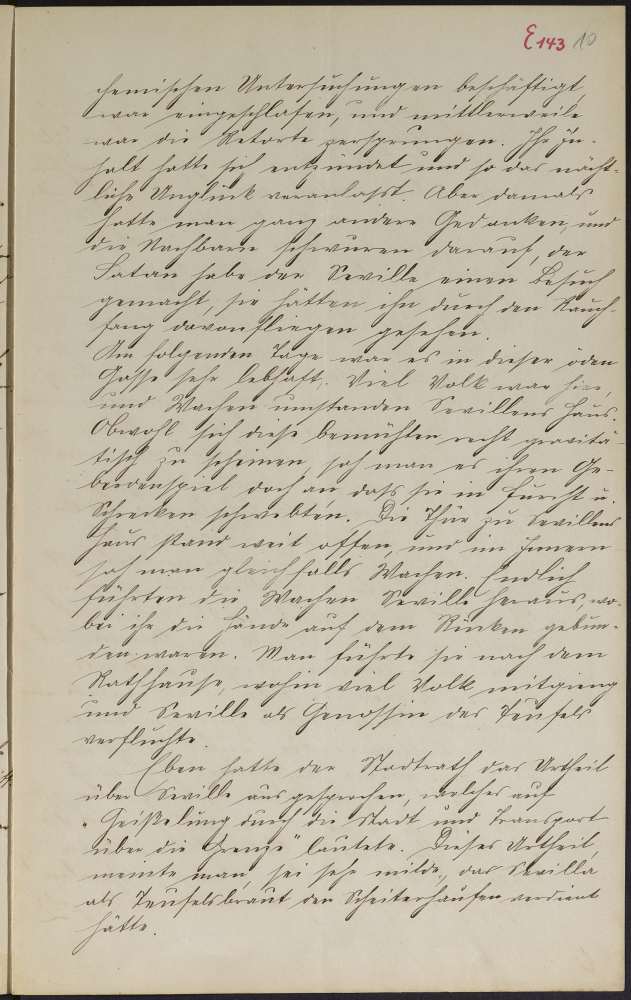 E 143 10
chemischen Untersuchungen beschäftigt,
war eingeschlafen, und mittlerweile
war die Retorte zersprungen. Ihr In-
halt hatte sich entzündet und so das nächt-
liche Unglück veranlaßt. Aber damals
hatte man ganz andere Gedanken, und
die Nachbarn schwuren darauf, der
Satan habe der Seville einen Besuch
gemacht, sie hätten ihn durch den Rauch-
fang davonfliegen gesehen.
Am folgenden Tage war es in dieser öden
Gasse sehr lebhaft. Viel Volk war hier,
und Wachen umstanden Sevillens Haus.
Obwohl sich diese bemühten recht gravitä-
tisch zu scheinen, sah man es ihren Ge-
berdenspiel doch an daß sie in Furcht u.
Schrecken schwebten. Die Thür zu Sevillens
Haus stand weit offen, und im Innern
sah man gleichfalls Wachen. Endlich
führten die Wachen Seville heraus, wo-
bei ihr die Hände auf dem Rücken gebun-
den waren. Man führte sie nach dem
Rathhause, wohin viel Volk mitgieng
und Seville als Genossin des Teufels
verfluchte.
Eben hatte der Stadtrath das Urtheil
über Seville ausgesprochen, welches auf
„Geißelung durch die Stadt und Transport
über die Grenze" lautete. Dieses Urtheil,
meinte man, sei sehr milde, da Sevilla
als Teufelsbraut den Scheiterhaufen verdient
hätte.